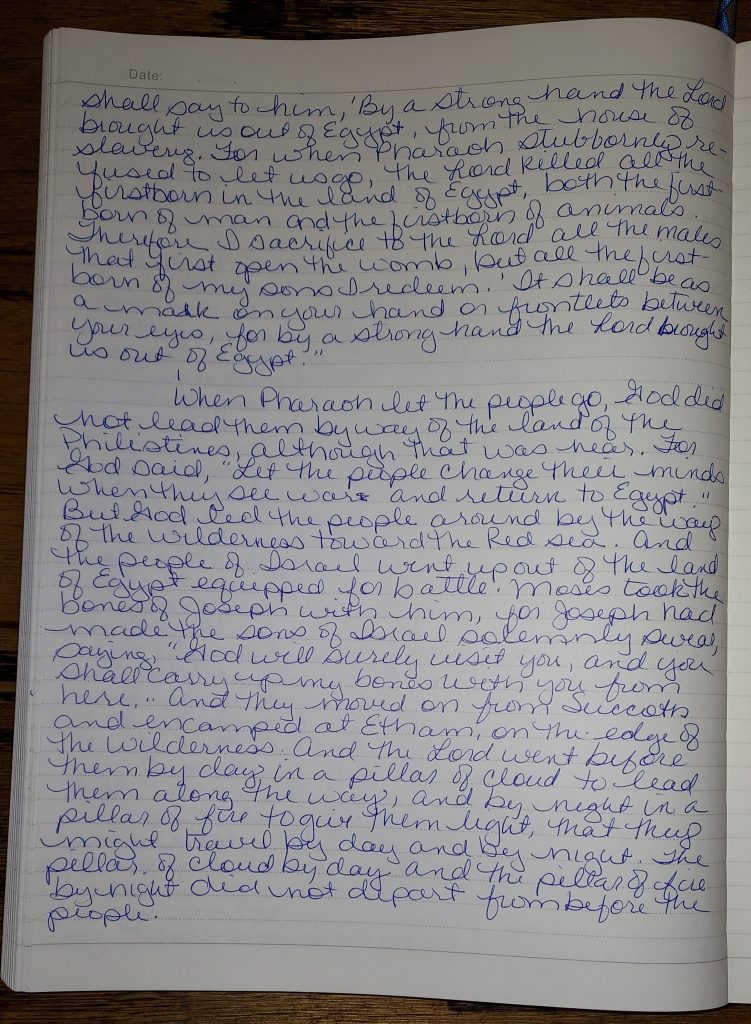 Date:
shall say to him, 'By a strong hand the Lord
brought us out of Egypt, from the house of
slavery. For when Pharaoh stubbornly re-
fused to let us go, the Lord killed all the
firstborn in the land of Egypt, both the first-
born of man and the firstborn of animals.
Therefore I sacrifice to the Lord all the males
that first open the womb, but all the first-
born of my sons I redeem.' It shall be as
a mark on your hand or frontlets between
your eyes, for by a strong hand the Lord brought
us out of Egypt."
When Pharaoh let the people go, God did
not lead them by way of the land of the
Philistines, although that was near. For
God said, "Let the people change their minds
when they see war and return to Egypt."
But God led the people around by the way
of the wilderness toward the Red sea. And
the people of Israel went up out of the land
of Egypt equipped for battle. Moses took the
bones of Joseph with him, for Joseph had
made the sons of Israel solemnly swear,
saying, "God will surely visit you, and you
shall carry up my bones with you from
here." And they moved on from Succoth
and encamped at Etham, on the edge of
the wilderness. And the Lord went before
them by day in a pillar of cloud to lead
them along the way, and by night in a
pillar of fire to give them light, that they
might travel by day and by night. The
pillar of cloud by day and the pillar of fire
by night did not depart from before the
people.